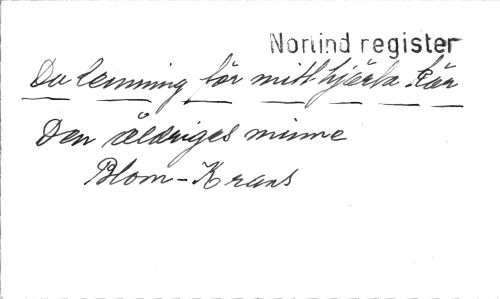 Norlind register
Du lemning för mitt hjerta kär
Den åldriges minne
Blom-Krans